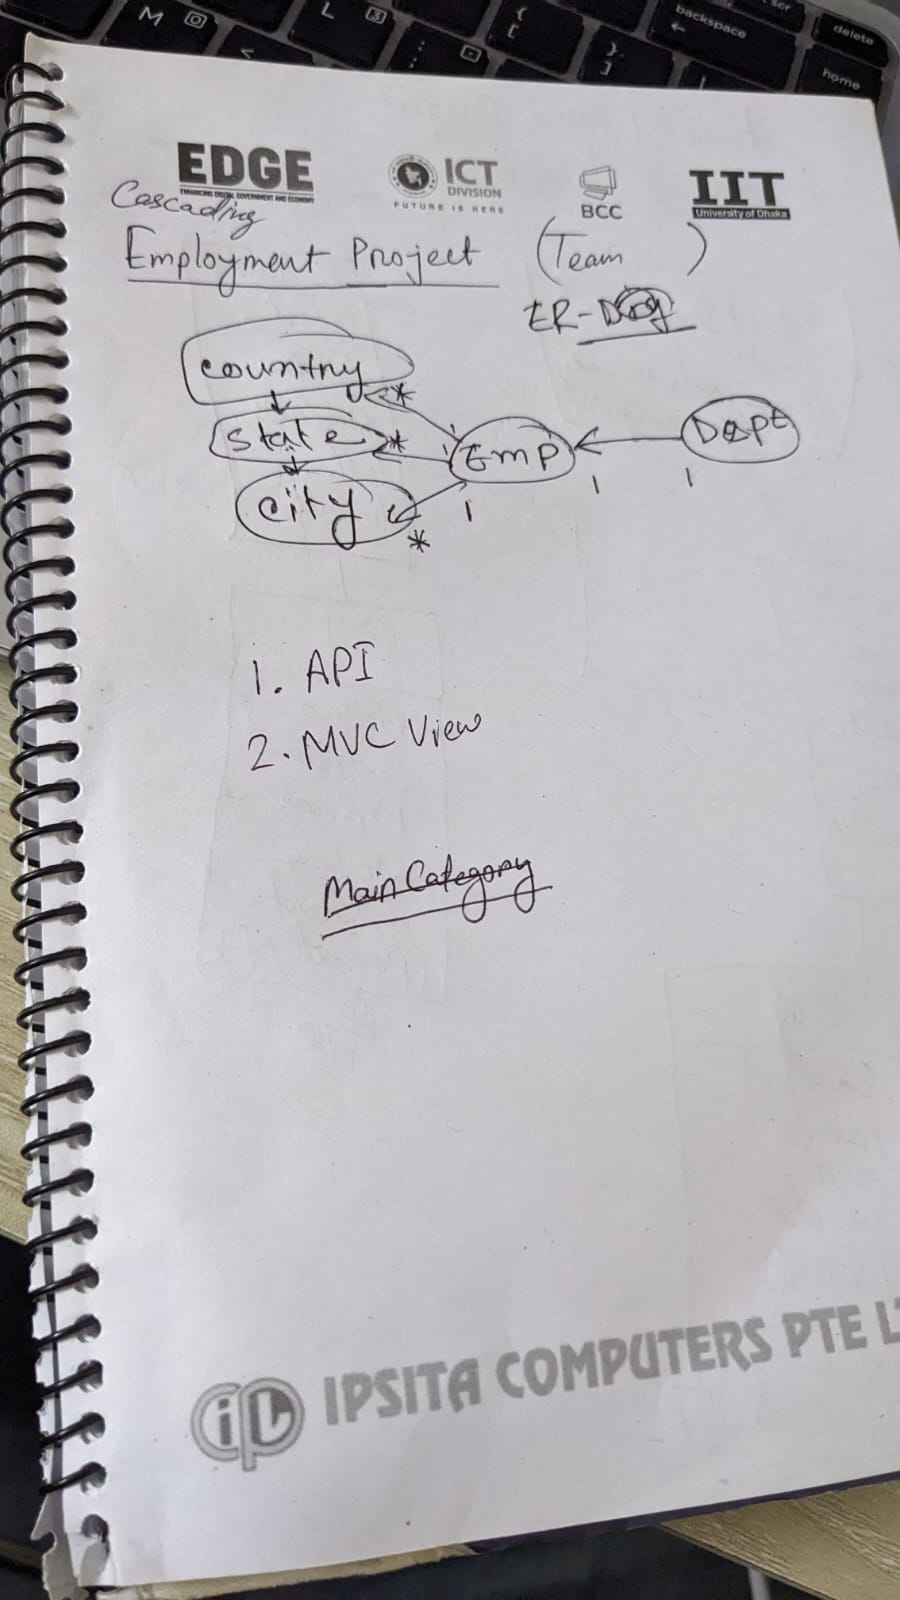 M
L
3
{
[
}
]
:
;
<
backspace
scr
delete
home
EDGE
ENHANCING DIGITAL GOVERNMENT AND ECONOMY
ICT
DIVISION
FUTURE IS HERE
BCC
IIT
University of Dhaka
Cascading
Employment Project (Team )
ER-
country
*
state
*
Emp
Dept
city
1
1
1
*
1. API
2. MVC View
Main Category
IPSITA COMPUTERS PTE